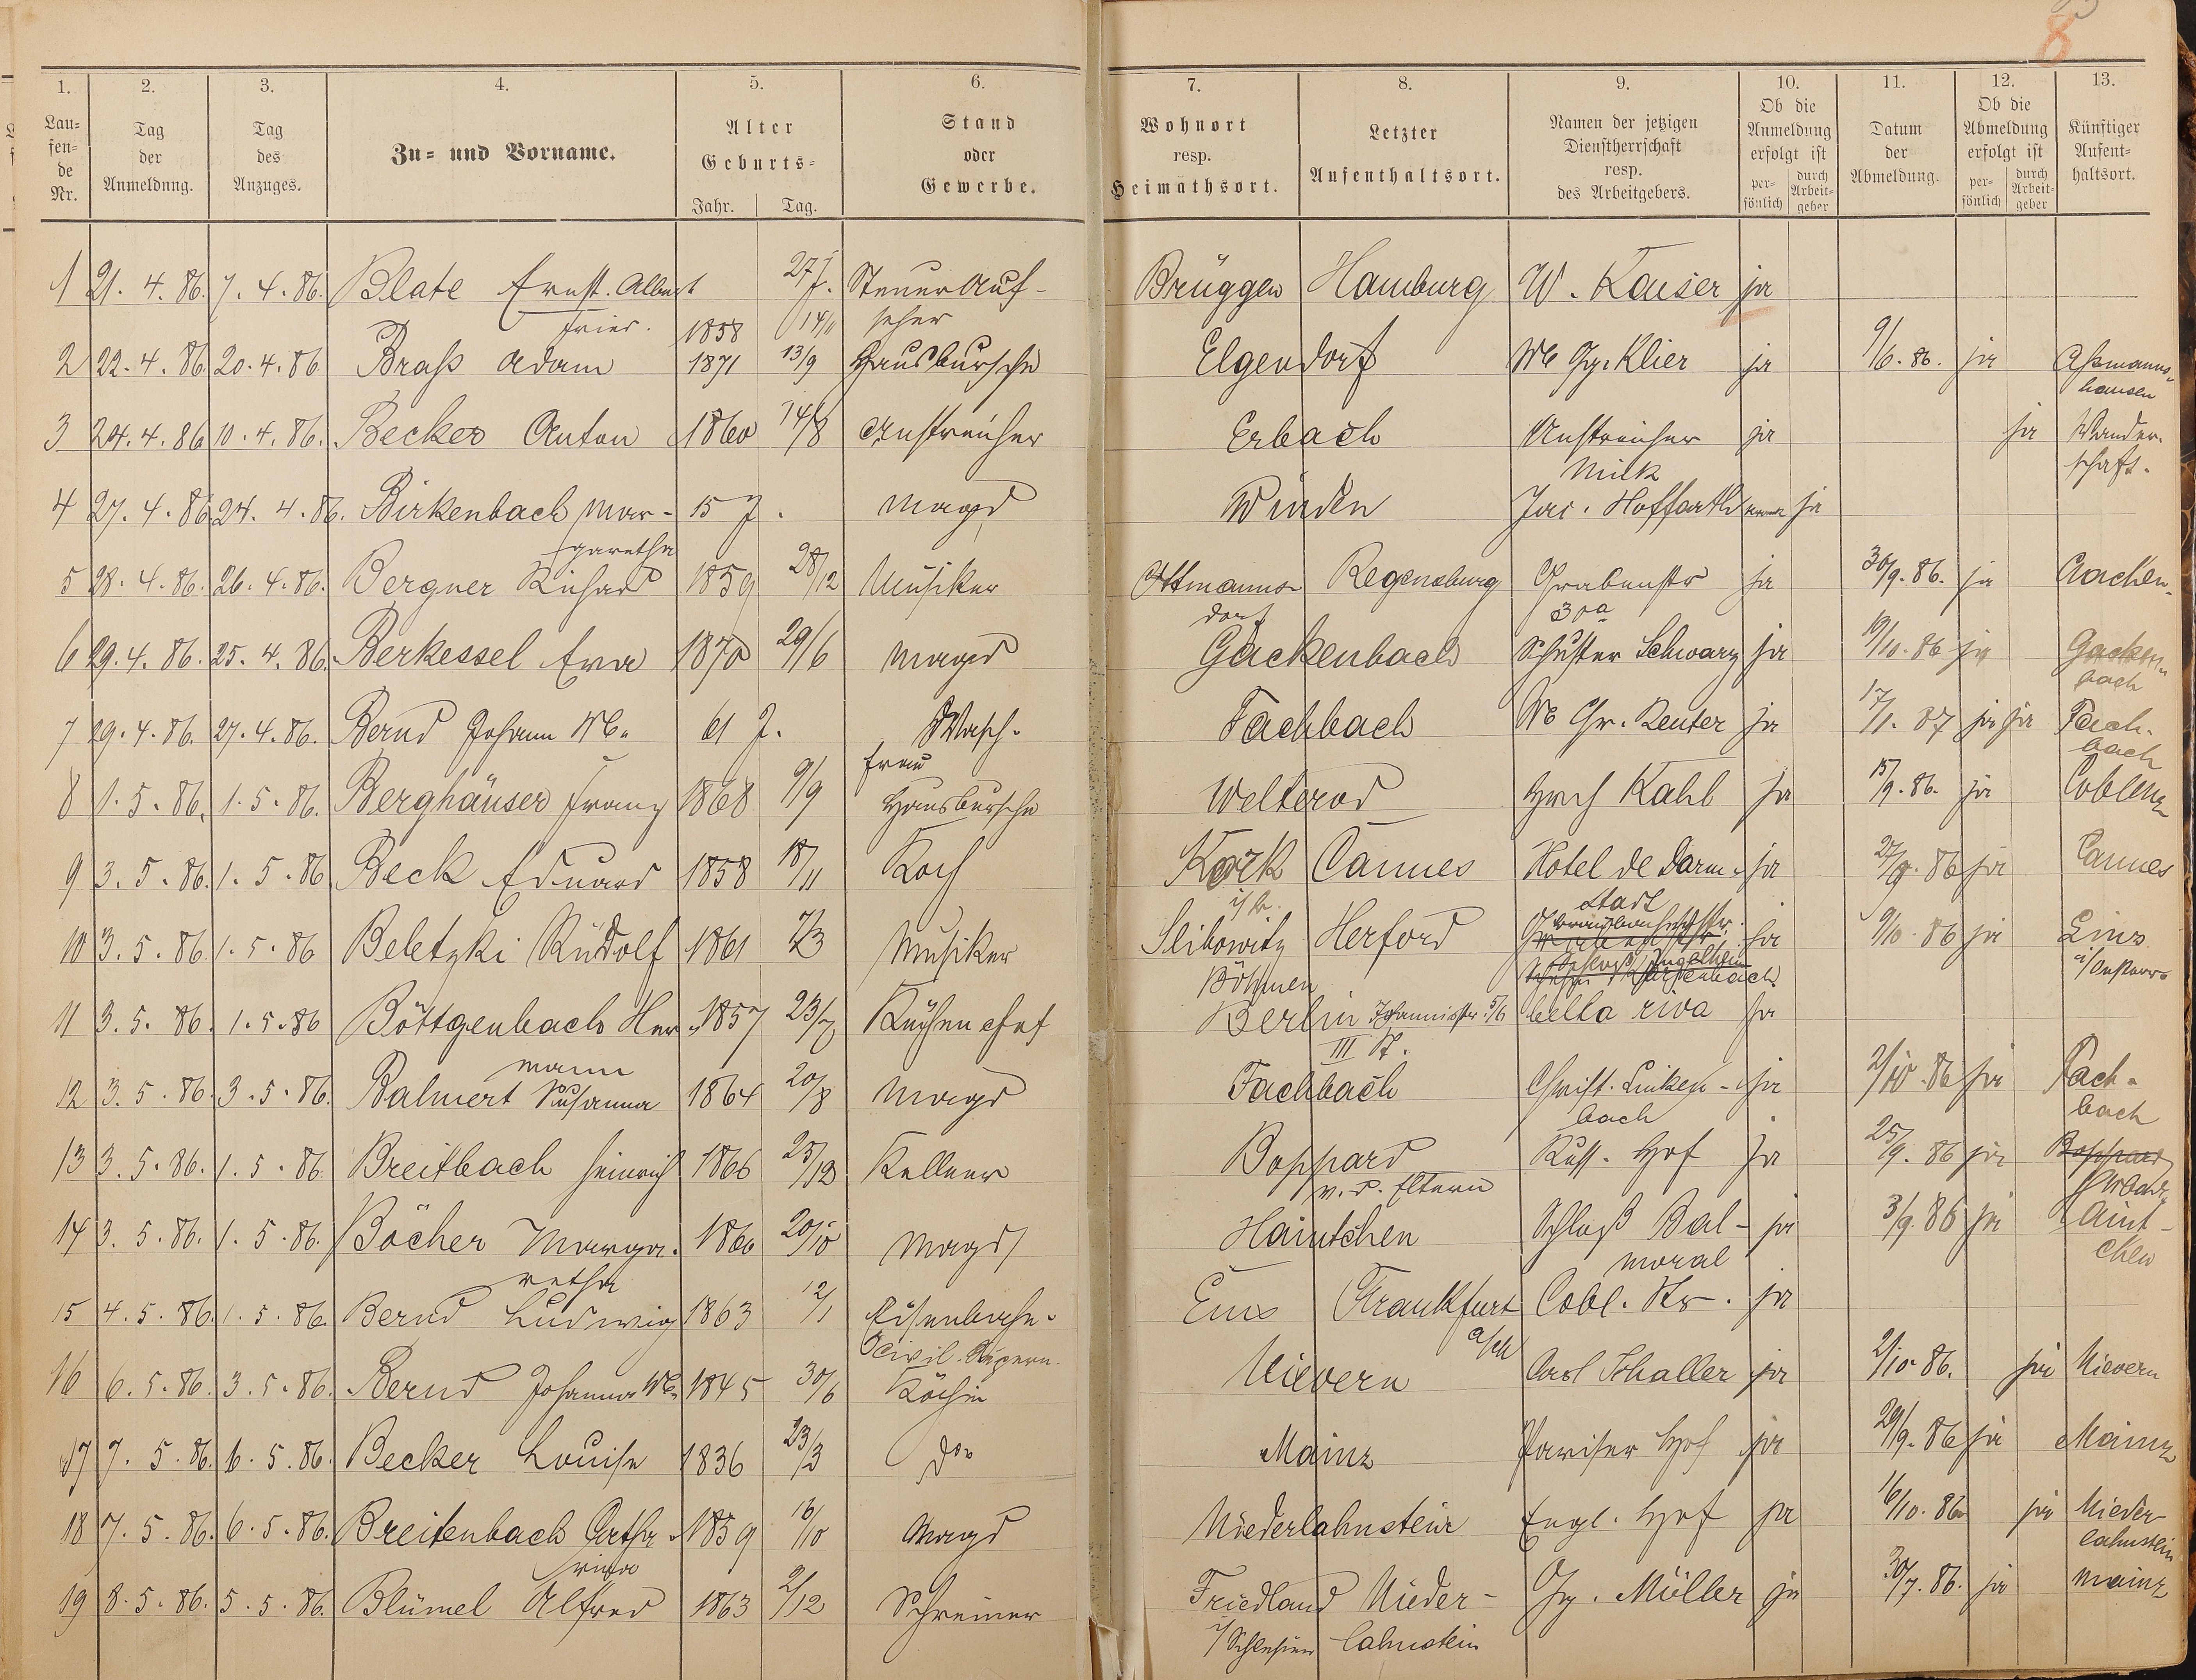 8
1. 2. 3. 4. 5. 6. 7. 8. 9. 10. 11. 12. 13.
Lau=fen=de Nr. Tag der Anmeldung. Tag des Anzuges. Zu= und Vorname. Alter Geburts= Jahr. Tag. Stand oder Gewerbe. Wohnort resp. Heimathsort. Letzter Aufenthaltsort. Namen der jetzigen Dienstherrschaft resp. des Arbeitgebers. Ob die Anmeldung erfolgt ist per=sönlich durch Arbeit=geber Datum der Abmeldung. Ob die Abmeldung erfolgt ist per=sönlich durch Arbeit=geber Künftiger Aufent=haltsort.
1 21. 4. 86. 7. 4. 86. Blate Ernst. Albert 27 J. Steuerauf- Brüggen Hamburg W. Kaiser ja
Frier. 1858 14/11 seher
2 22. 4. 86. 20. 4. 86. Braß Adam 1871 13/9 Hausbursche Elgendorf We Gg. Klier ja 9/6. 86. ja Aßmanns-
hausen
3 24. 4. 86 10. 4. 86. Becker Anton 1860 14/8 Anstreicher Erbach Anstreicher ja ja Wander-
Milk schaft.
4 27. 4. 86 24. 4. 86. Birkenbach Mar- 15 J. Magd Winden Jac. Hoffarth ja
garetha
5 28. 4. 86. 26. 4. 86. Bergner Richard 1859 28/12 Musiker Ottmanns- Regensburg Grabenstr ja 30/9. 86. ja Aachen.
dorf 30a
6 29. 4. 86. 25. 4. 86. Berkessel Eva 1870 29/6 Magd Gackenbach Schuster Schwarz ja 19/10. 86 ja Gacken-
bach
7 29. 4. 86. 27. 4. 86. Bernd Johann We. 61 J. Wasch- Fachbach We Gr. Reuter ja 17/1. 87 ja ja Fach-
frau bach
8 1. 5. 86. 1. 5. 86. Berghäuser Franz 1868 9/9 Hausbursche Welterod Hrch Kahl ja 15/9. 86. ja Coblenz
9 3. 5. 86. 1. 5. 86 Beck Eduard 1858 18/11 Koch Kork Cannes Hotel de Darm- ja 27/9. 86 ja Cannes
stadt
10 3. 5. 86. 1. 5. 86 Beletzki Rudolf 1861 7/3 Musiker Slibowitz Herford ja 9/10. 86 ja Linz
Böhmen
11 3. 5. 86. 1. 5. 86 Böttgenbach Her- 1857 23/7 Küchenchef Berlin Johannisstr. 5/6 bella riva ja
mann III St.
12 3. 5. 86. 3. 5. 86. Balmert Susanna 1864 20/8 Magd Fachbach Christ. Linken- ja 2/10. 86 ja Fach-
bach bach
13 3. 5. 86. 1. 5. 86 Breitbach Heinrich 1866 25/12 Kellner Boppard Russ. Hof ja 25/9. 86 ja Boppard
v. d. Eltern
14 3. 5. 86. 1. 5. 86. Böcher Marga- 1860 20/10 Magd Haintchen Schloß Bal- ja 3/9. 86 ja Haint-
retha moral chen
15 4. 5. 86. 1. 5. 86. Bernd Ludwig 1863 12/1 Eisenbahn- Ems Frankfurt Cobl. Str. ja
Civil. Supern. a/M
16 6. 5. 86. 3. 5. 86. Bernd Johanna We. 1845 30/6 Köchin Nievern Carl Thaller ja 2/10. 86. ja Nievern
17 7. 5. 86. 6. 5. 86. Becker Louise 1836 23/3 do Mainz Pariser Hof ja 29/9. 86 ja Mainz
18 7. 5. 86. 6. 5. 86. Breitenbach Catha- 1859 16/10 Magd Niederlahnstein Engl. Hof ja 16/10. 86 ja Nieder-
rina lahnstein
19 8. 5. 86. 5. 5. 86. Blümel Alfred 1863 2/12 Schreiner Friedland Nieder- Gg. Möller ja 30/7. 86. ja Mainz
i/Schlesien lahnstein